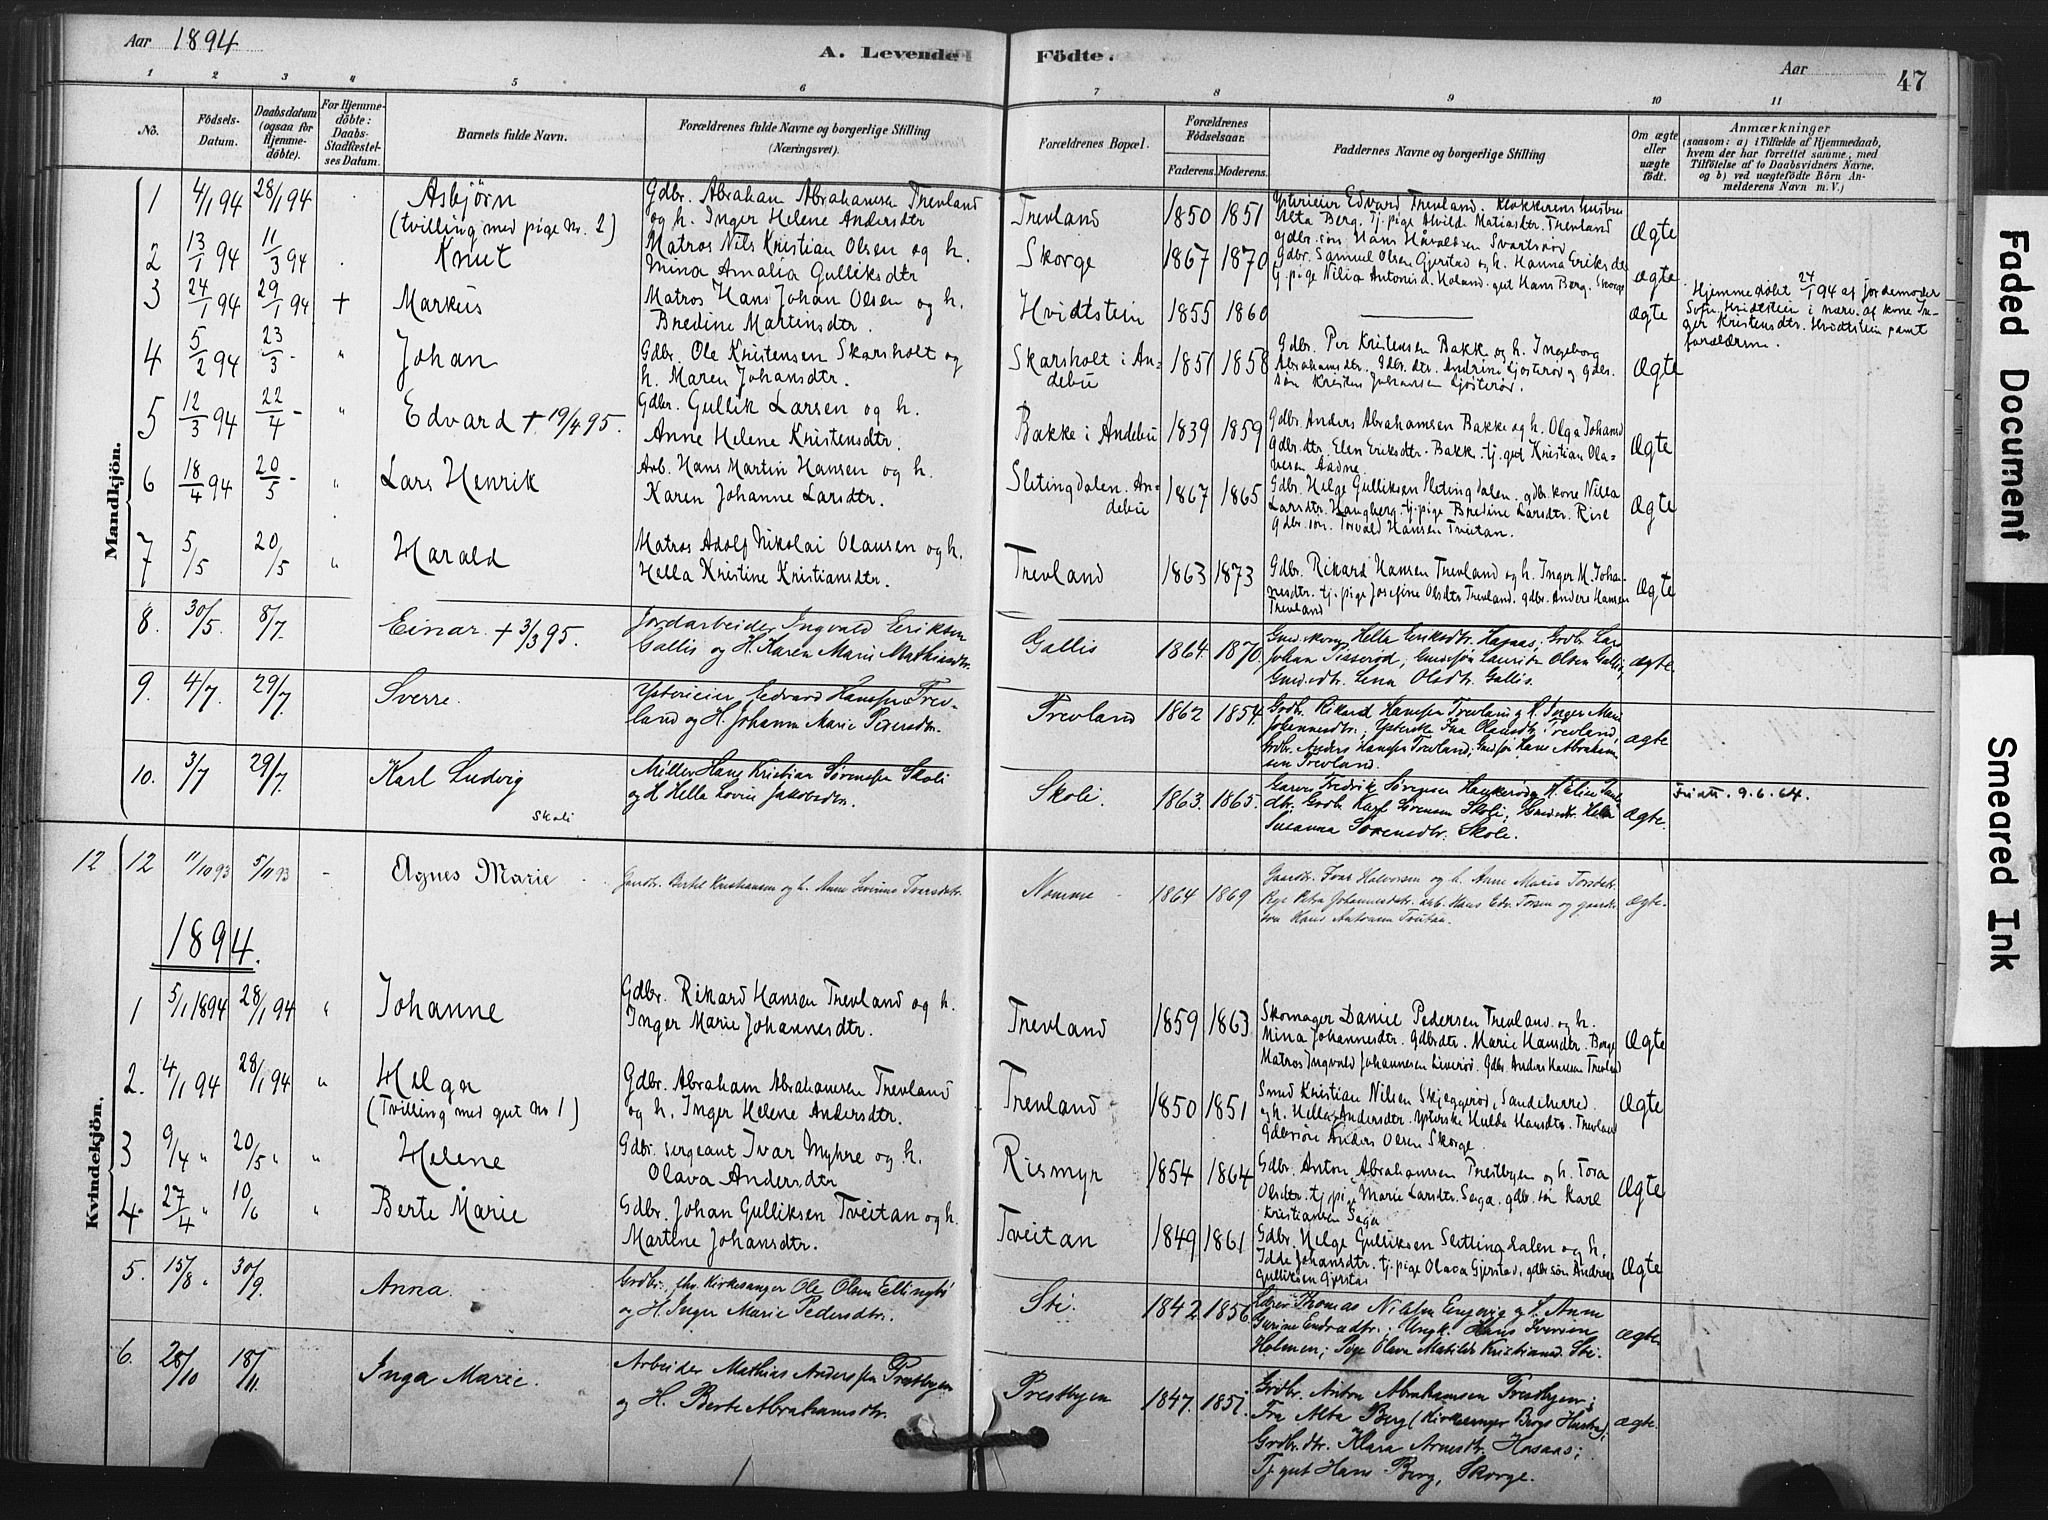 Aar 1894
A. Levende Födte.
Aar
47
1 2 3 4 5 6 7 8 9 10 11
No.
Födsels-
Datum.
Daabsdatum
(ogsaa for
Hjemme-
döbte).
For Hjemme-
döbte:
Daabs-
Stadfæstel-
ses Datum.
Barnets fulde Navn.
Forældrenes fulde Navne og borgerlige Stilling
(Næringsvei).
Forældrenes Bopæl.
Forældrenes
Födselsaar.
Faderens. Moderens.
Faddernes Navne og borgerlige Stilling
Om ægte
eller
uægte
födt.
Anmærkninger
(saasom: a) i Tilfælde af Hjemmedaab,
hvem der har forrettet samme, med
Tilföielse af to Daabsvidners Navne,
og b) ved uægtefödte Börn An-
melderens Navn m. V.)
Mandkjön.
1 4/1 94 28/1 94
Asbjørn
(tvilling med pige nr. 2)
Gdbr. Abraham Abrahamsen Trevland
og h. Inger Helene Andersdtr
Trevland 1850 1851
Ysterieier Edvard Trevland. Klokkerens hustru
Alta Berg. tj. pige Alvild Matiasdtr. Trevland
gdbr. søn Hans Håvaldsen Svartsrød
Ægte
2 13/1 94 11/3 94
Knut
Matros Nils Kristian Olsen og h.
Mina Amalia Gulliksdtr
Skorge 1867 1870
Gdbr. Samuel Olsen Gjerstad og h. Hanna Eriksdtr
tj. pige Nilia Antonisd. Holand. gut Hans Berg. Skorge
ægte
3 24/1 94 29/1 94 +
Markus
Matros Hans Johan Olsen og h.
Bredine Martinsdtr.
Hvidtstein 1855 1860
ægte
Hjemmedøbt 24/1 94 af jordemoder
Sofie Hvidtstein i nærv. af kone In-
ger Kristensdtr. Hvidtstein samt
forældrene.
4 5/2 94 23/3 - "
Johan
Gdbr. Ole Kristensen Skarsholt og
h. Maren Johansdtr.
Skarsholt i An-
debu
1851 1858
Gdbr. Per Kristensen Bakk og h. Ingeborg
Abrahamsdtr. Gdbr. dtr. Andrine Gjøsterød og gdbr.
søn Kristen Johansen Gjøsterød.
Ægte
5 12/3 94 22/4 - "
Edvard + 19/4 95.
Gdbr. Gullik Larsen og h.
Anne Helene Kristensdtr.
Bakke i Andebu 1839 1859
Gdbr. Anders Abrahamsen Bakke og h. Olga Johansd
gdbr. dtr. Elen Eriksdtr. Bakk. tj. gut Kristian Ola-
vesen Aadne
Ægte
6 18/4 94 20/5 - "
Lars Henrik
Arb. Hans Martin Hansen og h.
Karen Johanne Larsdtr.
Slitingdalen. An-
debu
1867 1865
Gdbr. Helge Gulliksen Slitingdalen. gdbr. kone Nilla
Larsdtr. Haugberg. tj. pige Bredine Larsdtr. Rise
gdbr. søn. Torvald Hansen Tveitan.
Ægte
7 5/5 20/5 "
Harald
Matros Adolf Nikolai Olausen og h.
Hella Kristine Kristiansdtr.
Trevland 1863 1873
Gdbr. Rikard Hansen Trevland og h. Inger M. Joha-
nesdtr. tj. pige Josefine Olsdtr Trevland. gdbr. Anders Hansen
Trevland
Ægte
8. 30/5. 8/7.
Einar. + 3/3 95.
Jordarbeider Ingvald Eriksen
Gallis og H. Karen Marie Mathiasdtr.
Gallis 1864. 1870.
Gmd.skone Hella Eriksdtr. Hasaas; Grdbr. Lars
Johan Pisserød; Gmdssøn Laurits Olsen Gallis;
Gmd.dtr. Lena Olsdtr. Gallis.
ægte
9. 4/7. 29/7.
Sverre.
Ysterieier Edvard Hansen Trev-
land og H. Johanne Marie Pedersdtr.
Trevland 1862 1854.
Grdbr. Rikard Hansen Trevland og H. Inger Marie
Johannesdtr.; Ysterske Ina Olausdtr. Trevland;
Grdbr. Anders Hansen Trevland; Gmdssøn Hans Abraham-
sen Trevland.
ægte
10. 3/7 29/7.
Karl Ludvig
Skoli
Møller Hans Kristian Sørensen Skoli
og H. Hella Lovise Jakobsdtr.
Skoli. 1863. 1865.
Garver Fredrik Sørensen Haukerød og H. Elise
dtr. Grdbr. Karl Sørensen Skoli; Gmd.dtr. Hella
Susanna Sørensdtr. Skoli.
Ægte.
Friatt. 9.6.64.
12 12 11/10 93 5/11 93 -
Agnes Marie
Gaardbr. Bertel Kristiansen og h. Anne Lovine Ivarsdatr.
Namme 1864 1869
Gaardbr. Ivar Halvorsen og h. Anne Marie Torsdatr.
Pige Petra Johannesdatr. arb. Hans Edv. Torsen og gaardbr.
søn Hans Antonsen Tveitan.
Ægte.
1894.
Kvindekjön.
1 5/1 1894 28/1 94 "
Johanne
Gdbr. Rikard Hansen Trevland og h.
Inger Marie Johannesdtr.
Trevland 1859 1863
Skomager Daniel Pedersen Trevland og h.
Mina Johannesdtr. Gdbrdtr. Marie Hansdtr. Borge
Matros Ingvald Johannesen Liverød. Gdbr. Anders Hansen Trevland
Ægte
2. 4/1 94 28/1 94 "
Helga
(Tvilling med gut No 1)
Gdbr. Abraham Abrahamsen Trevland
og h. Inger Helene Andersdtr.
Trevland 1850 1851
Smed Kristian Nilsen Skjeggerød, Sandeherred.
og h. Hella Andersdtr. Ysterske Hulda Hansdtr. Trevland
Gdbrsøn Anders Olsen Skorge
Ægte
3 9/4 " 20/5 " "
Helene
Gdbr. sergeant Ivar Myhre og h.
Olava Andersdtr
Rismyr 1854 1864
Gdbr. Anton Abrahamsen Prestbyen og h. Tora
Olsdtr. tj. pige Marie Larsdtr. Saga. gdbr. søn Karl
Kristiansen Saga
Ægte
4 27/4 " 10/6 "
Berte Marie
Gdbr. Johan Gulliksen Tveitan og h.
Martine Johansdtr.
Tveitan 1849 1861
Gdbr. Helge Gulliksen Slittingdalen og h.
Idde Johansdtr. tj. pige Olava Gjerstad, gdbr søn Andreas
Gulliksen Gjerstad
Ægte
5. 15/8 " 30/9.
Anna.
Grdbr. fhv. Kirkesanger Ole Olsen Ellingsbø
og H. Inger Marie Pedersdtr.
Sti. 1842 1856
Lærer Thomas Nilsen Engevig og H. Anne
Gurine Endresdtr.; Ungk. Hans Iversen
Holmen; Pige Olava Matilde Kristiansd. Sti.
Ægte.
6. 28/10 18/11.
Inga Marie.
Arbeider Mathias Andersen Prestbyen
og H. Berte Abrahamsdtr.
Prestbyen 1847. 1851.
Grdbr. Anton Abrahamsen Prestbyen;
Fru Alta Berg (Kirkesanger Bergs Hustru);
Grdbr.dtr. Klara Arnesdtr. Hasaas;
Tj. gut Hans Berg, Skorge.
ægte.
Faded Document
Smeared Ink